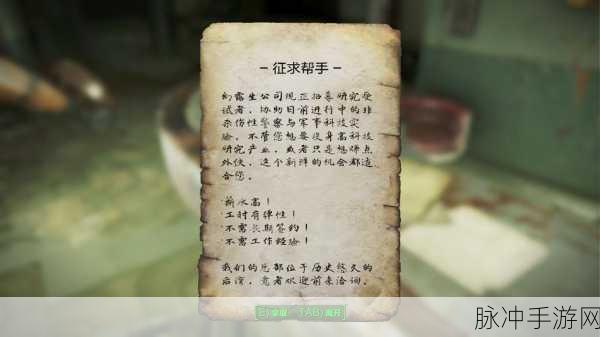 – 征求帮手 –
幻露生公司现正招募研究受
试者，协助目前进行中的非
杀伤性警察与军事科技实
验。不管您想要投身高科技
研究产业，或者只是想赚点
外快，这个新鲜的机会都适
合您。
·薪水高！
·工时有弹性！
·不需长期签约！
·不需工作经验！
我们的总部位于历史悠久的
后湾，意者欢迎前来洽询。
E)拿取 TAB)离开
脉冲手游网